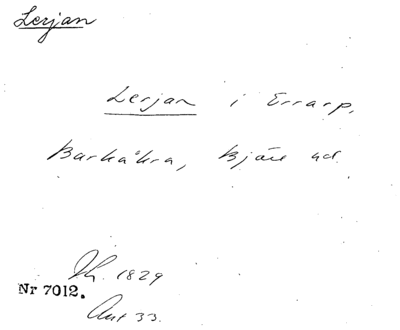 Lerjan
Lerjan i Errarp,
Barkåkra, Bjäre hd.
Th. 1829
Nr 7012.
Ant 33.